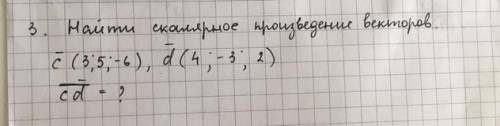 3. Найти скалярное произведение векторов.
c̄ (3;5;-6), d̄ (4;-3; 2)
c̄d̄ = ?